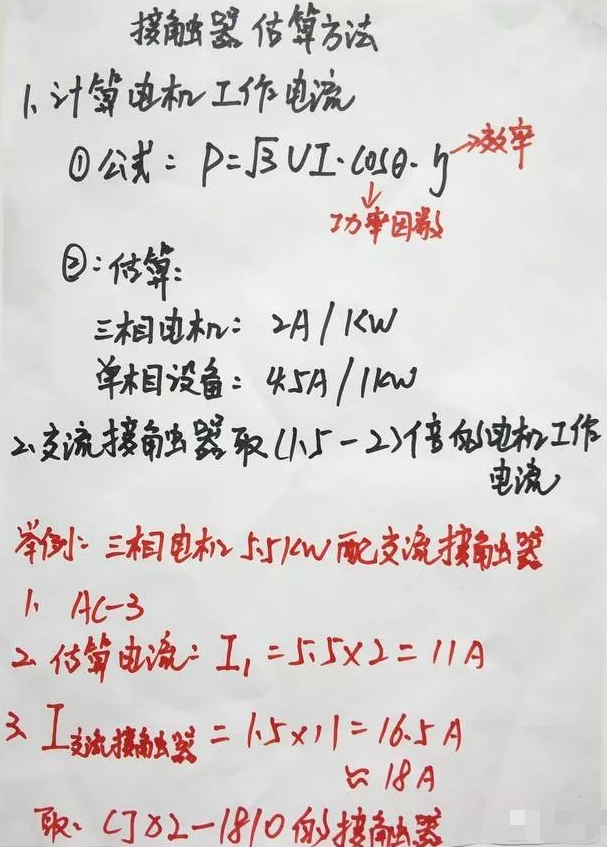 接触器估算方法
1、计算电机工作电流
①公式：P=√3UI·cosθ·η→效率
↓
功率因数
②：估算：
三相电机：2A/1KW
单相设备：4.5A/1KW
2、交流接触器取(1.5-2)倍的电机工作
电流
举例：三相电机5.5KW配交流接触器
1、AC-3
2、估算电流：I₁=5.5×2=11A
3、I交流接触器=1.5×11=16.5A
≈18A
取：CJX2-1810的接触器